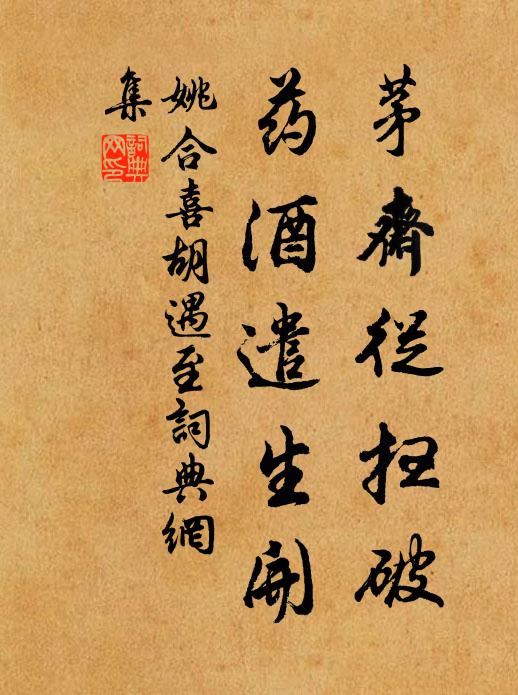 茅齋從扫破
药酒遣生開
姚合喜胡遇至詞典網
集
詞典网印